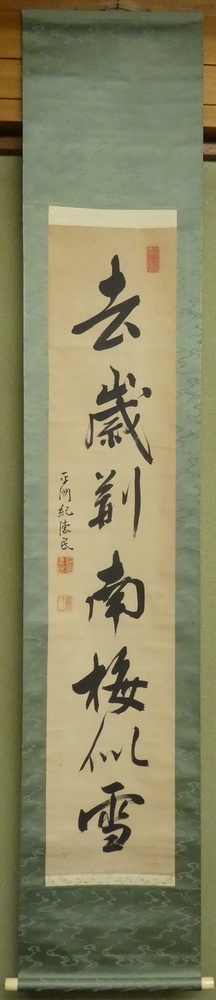 去歳荊南梅似雪
平洲紀徳民